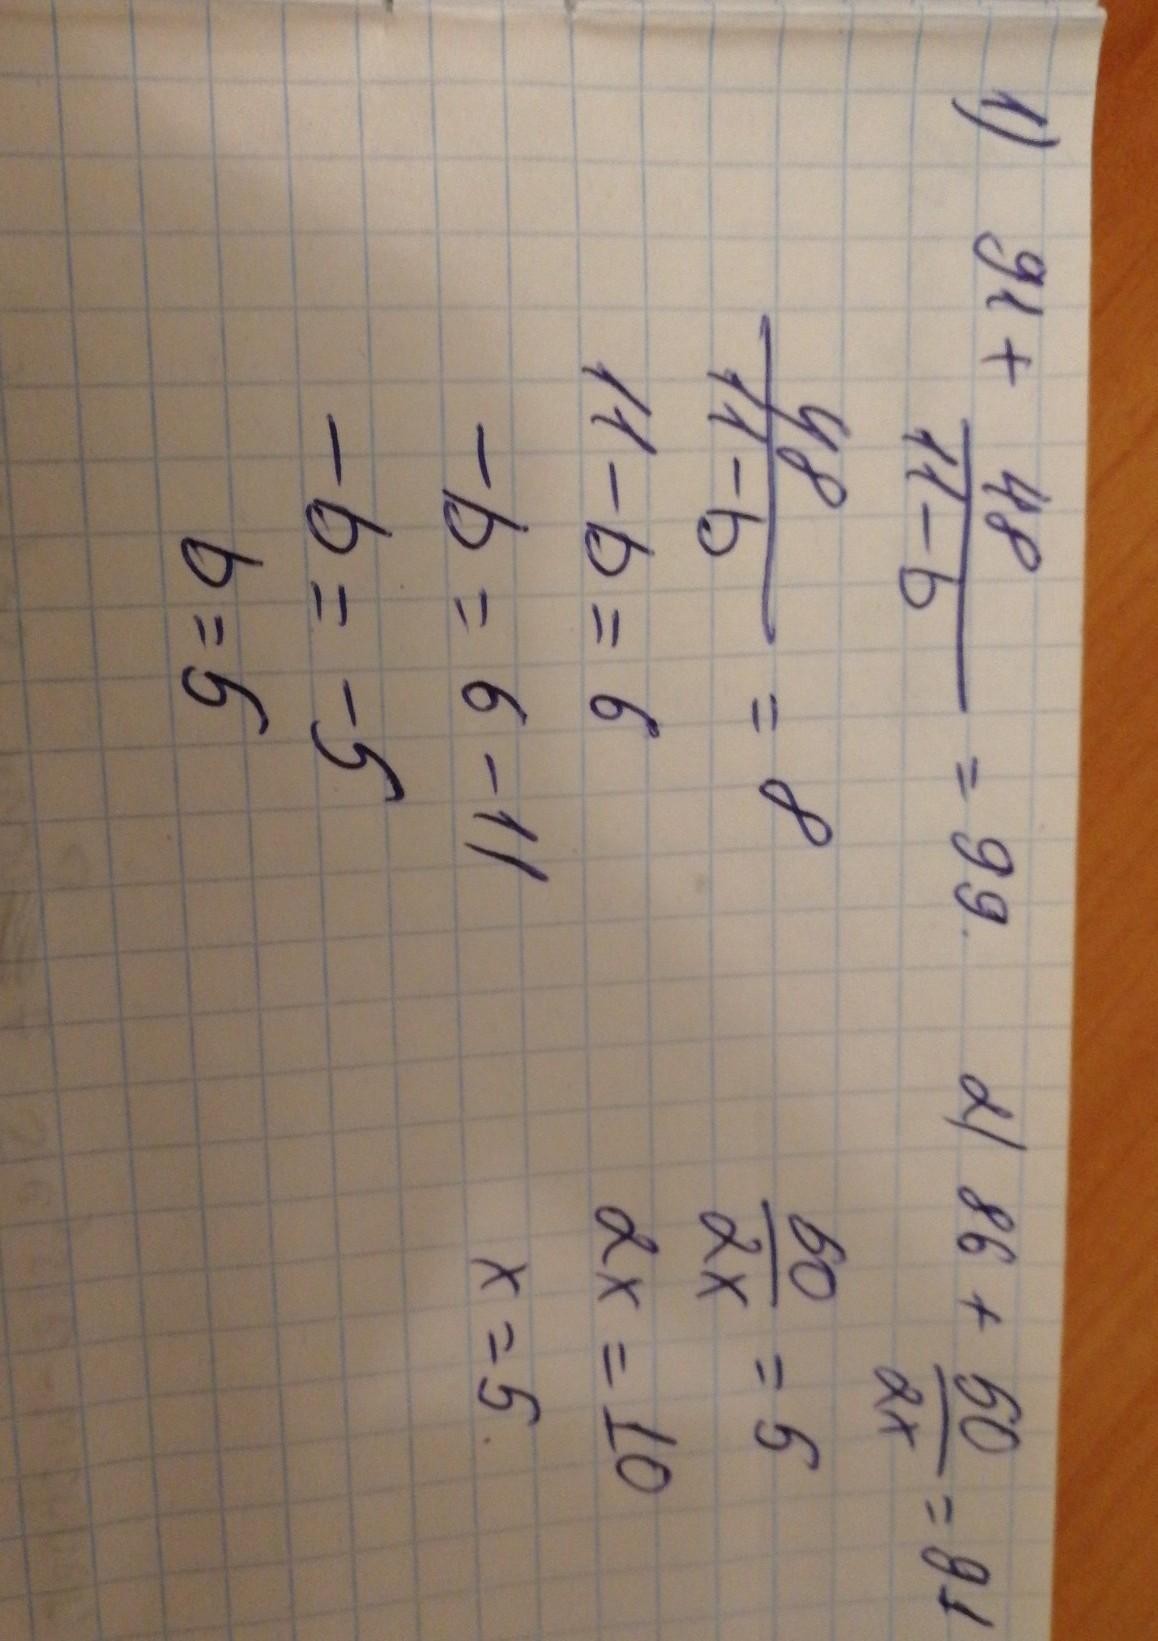 1) 91 + 48/(11-b) = 99.
48/(11-b) = 8
11-b = 6
-b = 6-11
-b = -5
b = 5
2) 86 + 50/2x = 91
50/2x = 5
2x = 10
x = 5.